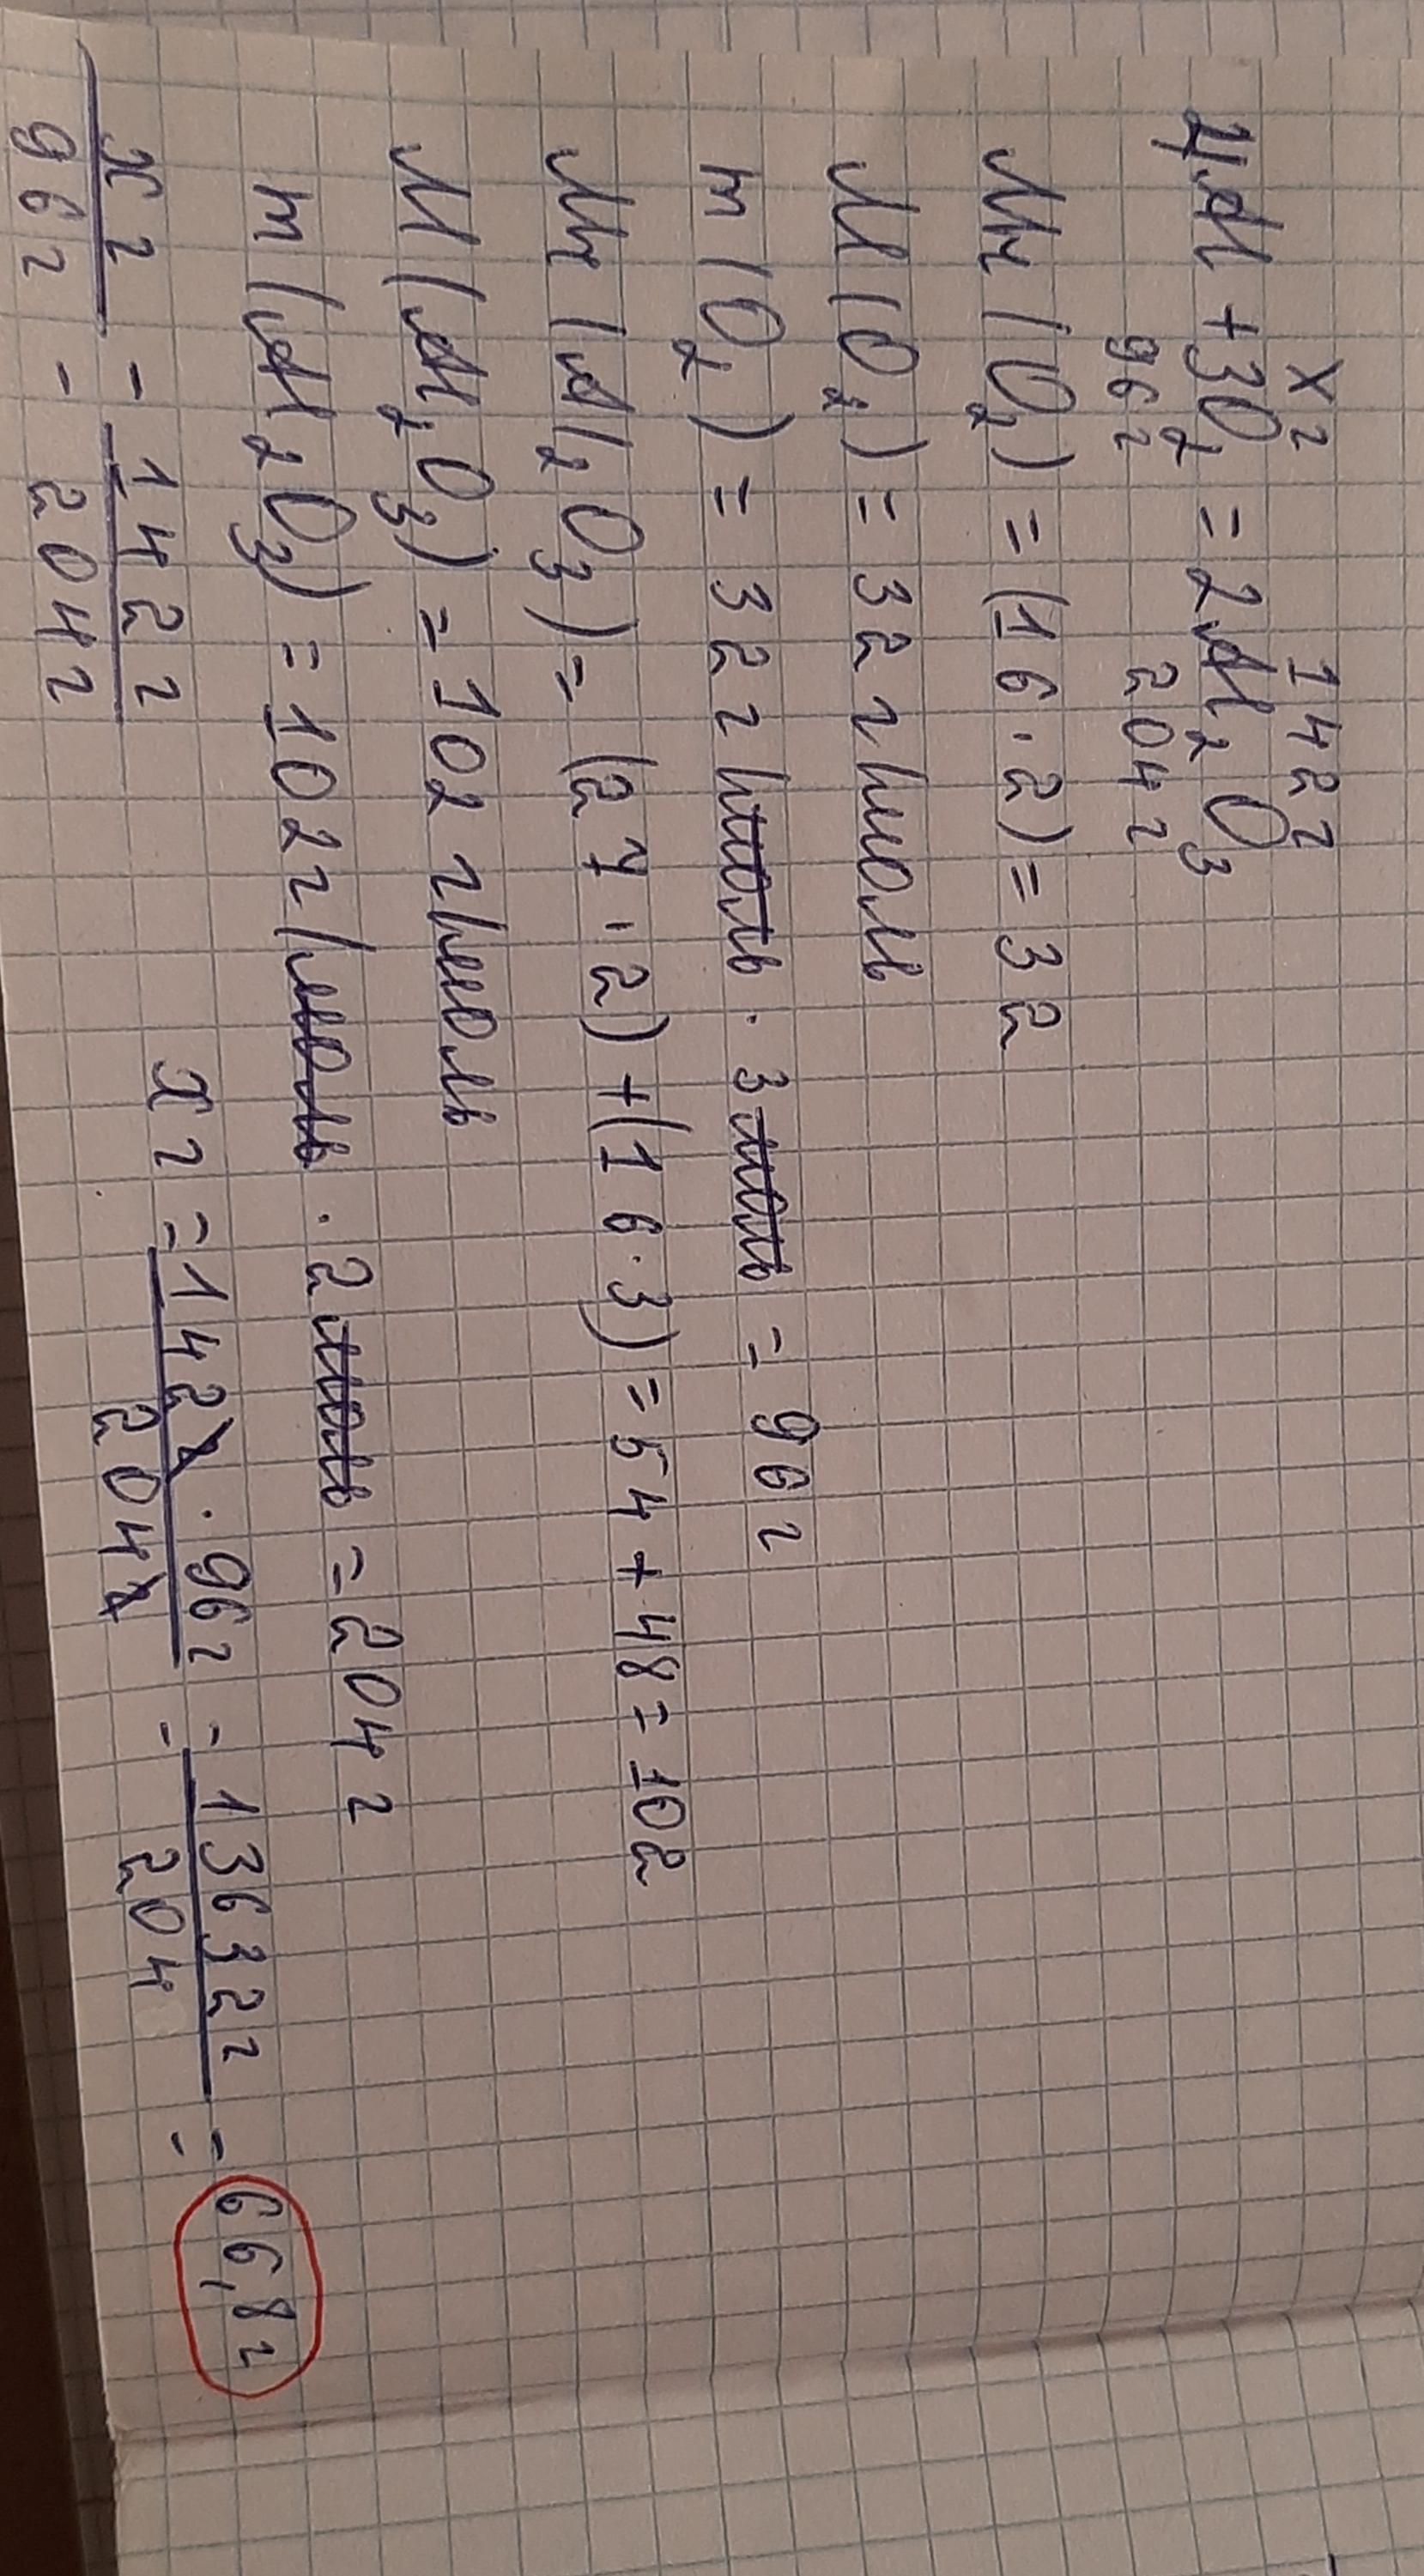 х г 142 г
4Al + 3O₂ = 2Al₂O₃
96 г 204 г
Mr (O₂) = (16 · 2) = 32
M (O₂) = 32 г/моль
m (O₂) = 32 г/моль · 3 моль = 96 г
Mr (Al₂O₃) = (27 · 2) + (16 · 3) = 54 + 48 = 102
M (Al₂O₃) = 102 г/моль
m (Al₂O₃) = 102 г/моль · 2 моль = 204 г
х г / 96 г = 142 г / 204 г х г = 142 г · 96 г / 204 г = 13632 г / 204 = 66,8 г